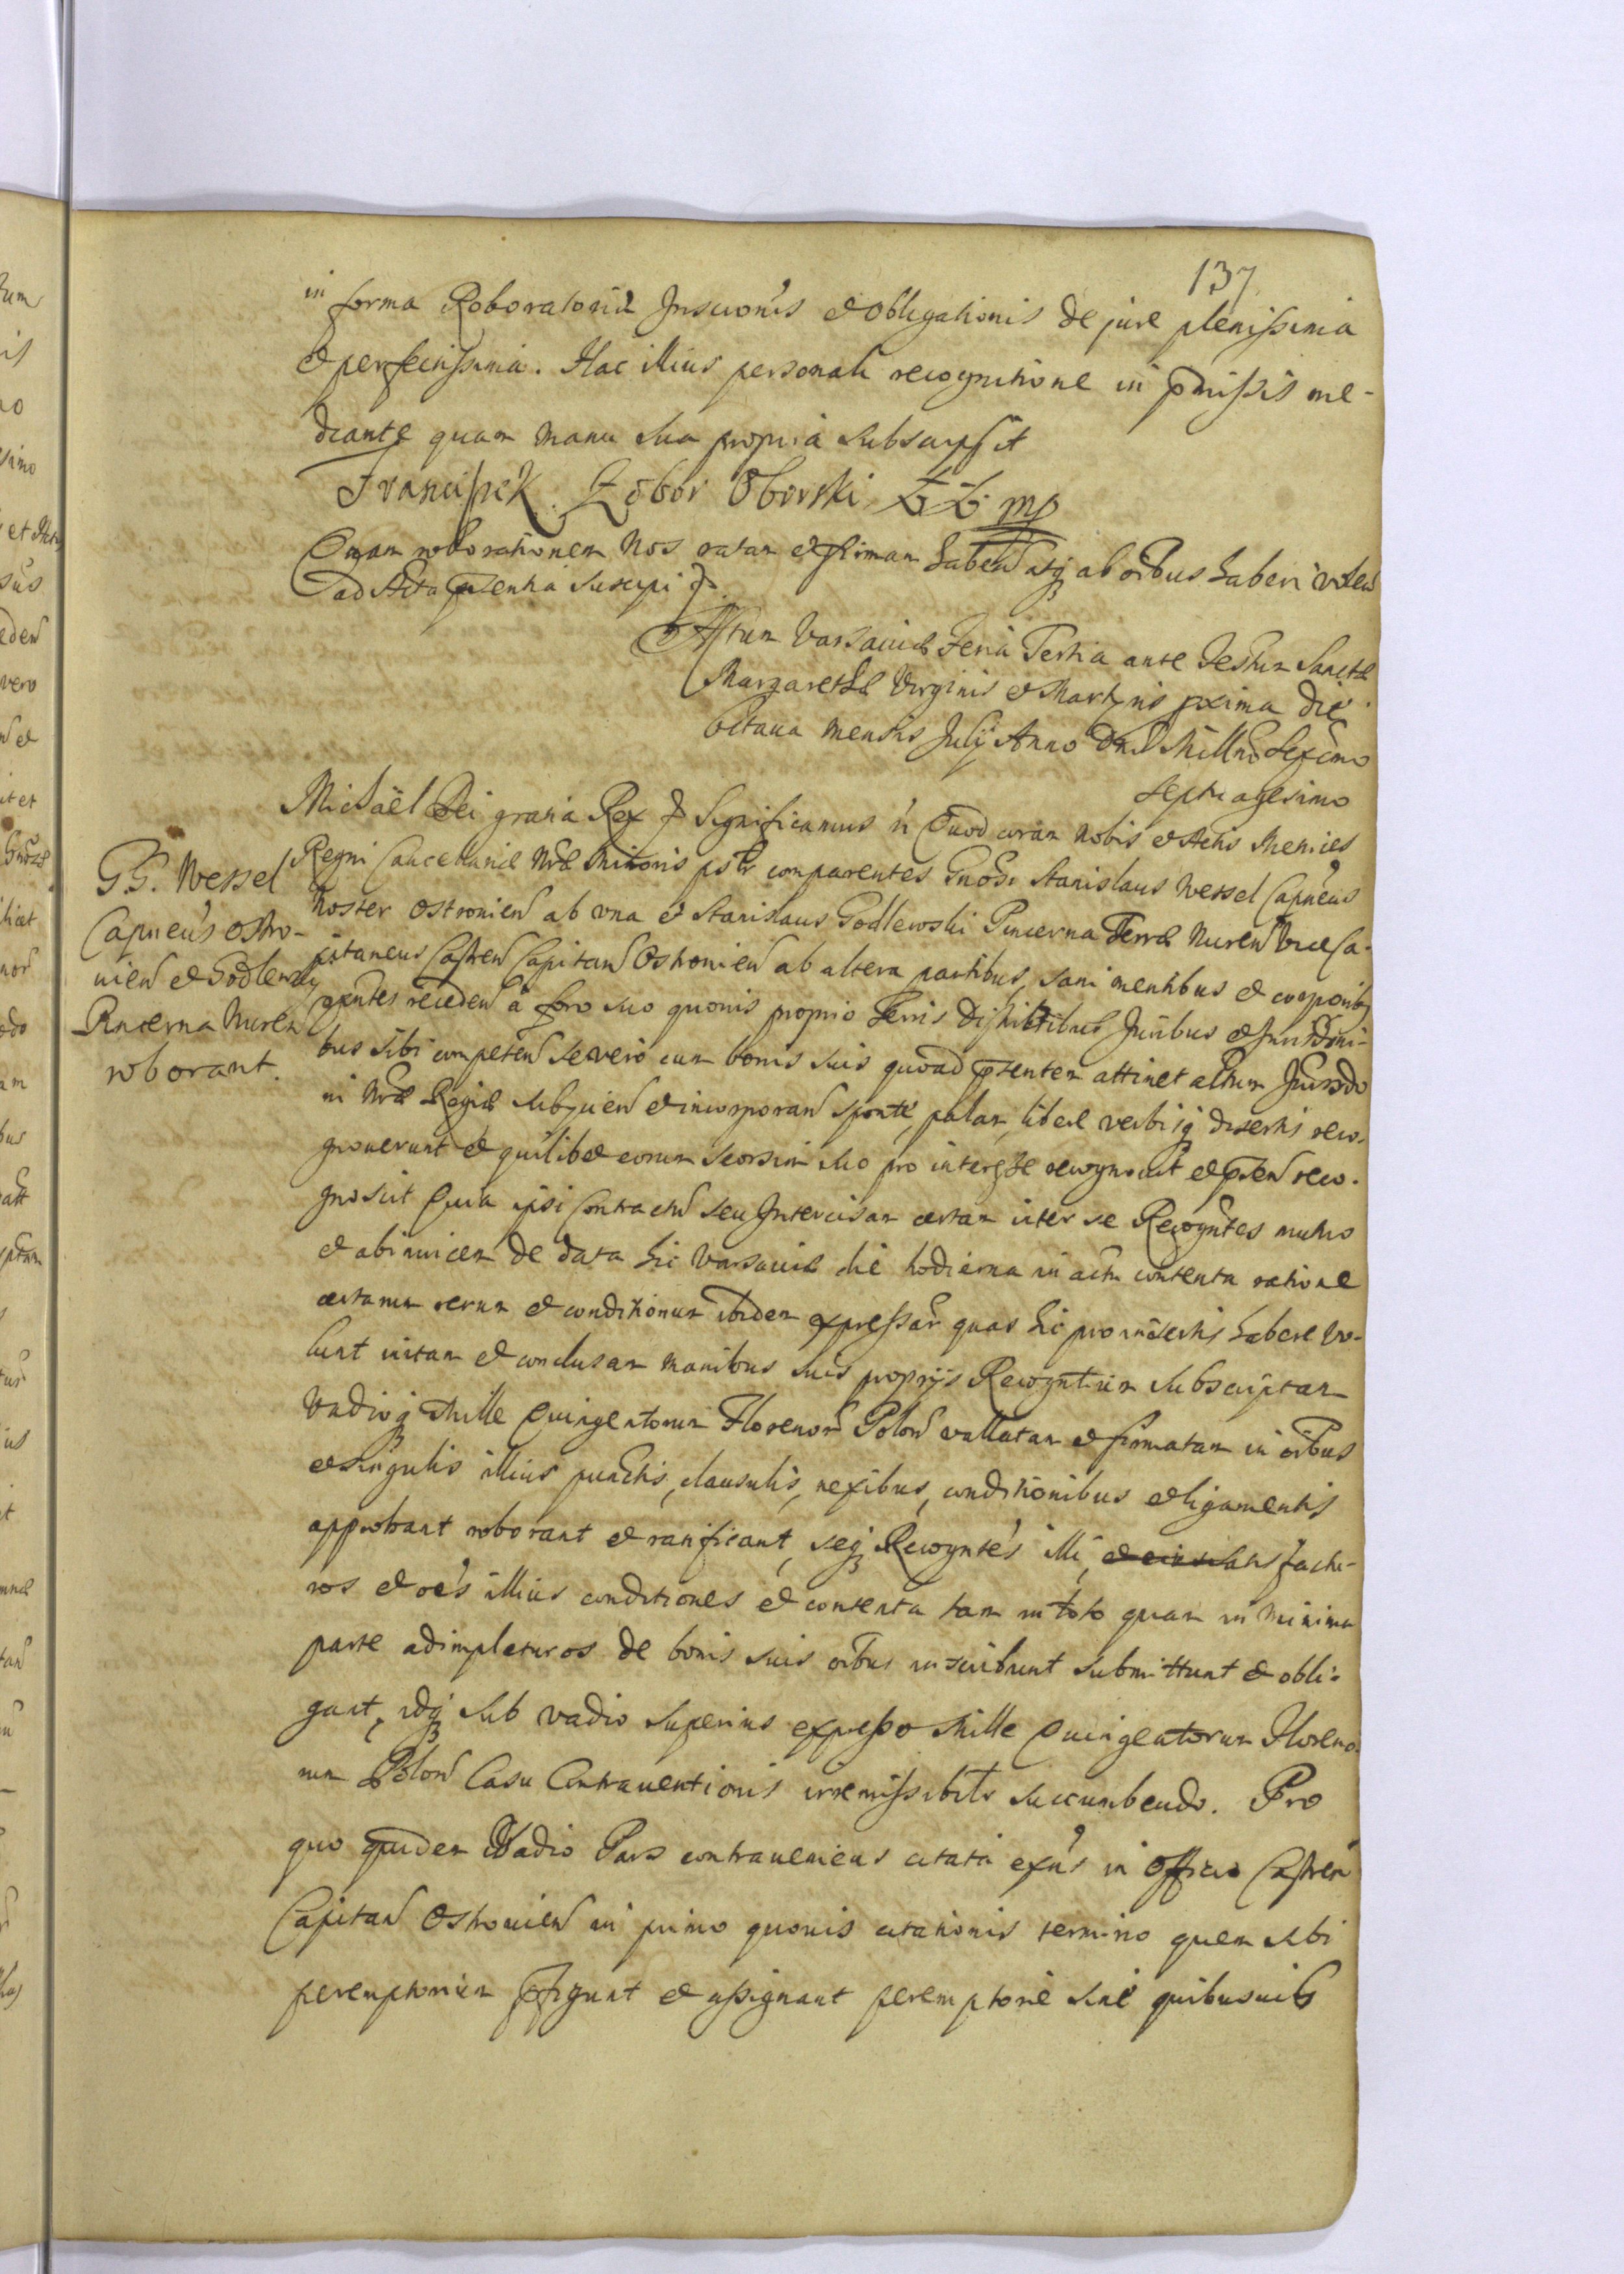 137
in forma Roboratoriæ Inscrōnis et Obligationis de jure plenissima
et perfectissima. Hac illius personali recognitione in p̄missis me-
diante quam manu sua propria subscripsit
Franciszek Oborski mp
Quam roborationem Nos ratam et firmam haben̄ atq ab oībus haberi volen̄
ad Acta p̄sentia suscepi
Actum Varsaviæ Feria Tertia ante Festum Sanctæ
Margarethæ Virginis et Martyris p̄xima die
Octava mensis Julij Anno Dnī Millm̄o Sexcm̄o
septuagesimo
G.G. Wessel
Capneūs Ostro-
nien̄ et Godlewsky
Pincerna Nuren
roborant.
Michaël Dei gratia Rex Significamus Quod coram Nobis et Actis Metrices
Regni Cancellariæ Nræ Minoris psłr comparentes Gnōsi Stanislaus Wessel Capneūs
Noster Ostronien̄ ab una et Stanislaus Godlewski Pincerna Terræ Nuren̄ Vice Ca-
pitaneus Castren̄ Capitan̄ Ostronien̄ ab altera partibus, sani mentibus et corporibq
existentes receden̄ à foro suo quovis proprio Terris Districtibus Juribus et Jurisdōni-
bus sibi competen̄ se vero cum bonis suis quoad p̄sentem attinet actum Jurisdo
ni Nræ Regiæ subijcien̄ et incorporan̄ sponte, palam, libere verbisq disertis reco-
gnoverunt et quilibet eorum seorsim suo pro interesse recognovit et p̄sen̄ reco-
gnoscit Quia ipsi Contractū seu Intercisam certam inter se Recogn̄tes mutuo
et ab invicem de data hic Varsaviæ die hodierna in actu contenta ratione
certarum rerum et conditionum ibidem expressar̄ quas hic pro insertis habere vo-
lunt initam et conclusam manibus suis proprijs Recogn̄tium subscriptam
Vadioq Mille Quingentorum Florenor̄ Polon̄ vallatam et firmatam in oībus
et singulis illius punctis, clausulis, nexibus, conditionibus et ligamentis
approbant roborant et ratificant, seq Recogn̄tes illi satisfactu-
ros et oēs illius conditiones et contenta tam in toto quam in minima
parte adimpleturos de bonis suis oībus inscribunt submittunt et obli-
gant, idq sub vadio superius expresso Mille Quingentorum Floreno-
rum Polon̄ Casu Contraventionis irremissibilr succumbendo. Pro
quo quidem Vadio Pars contraveniens citata exn̄s in Officio Castren̄
Capitan̄ Ostronien̄ in primo quovis citationis termino quem sibi
peremptorium p̄figunt et assignant peremptorie sine quibusvis